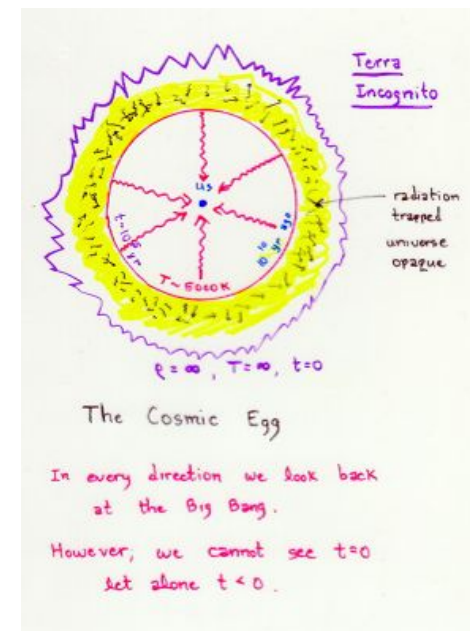 Terra
Incognito
us
radiation
trapped
universe
opaque
t~10⁵ yr
10¹⁰ yr ago
T~5000K
ρ = ∞, T = ∞, t=0
The Cosmic Egg
In every direction we look back
at the Big Bang.
However, we cannot see t=0
let alone t < 0.